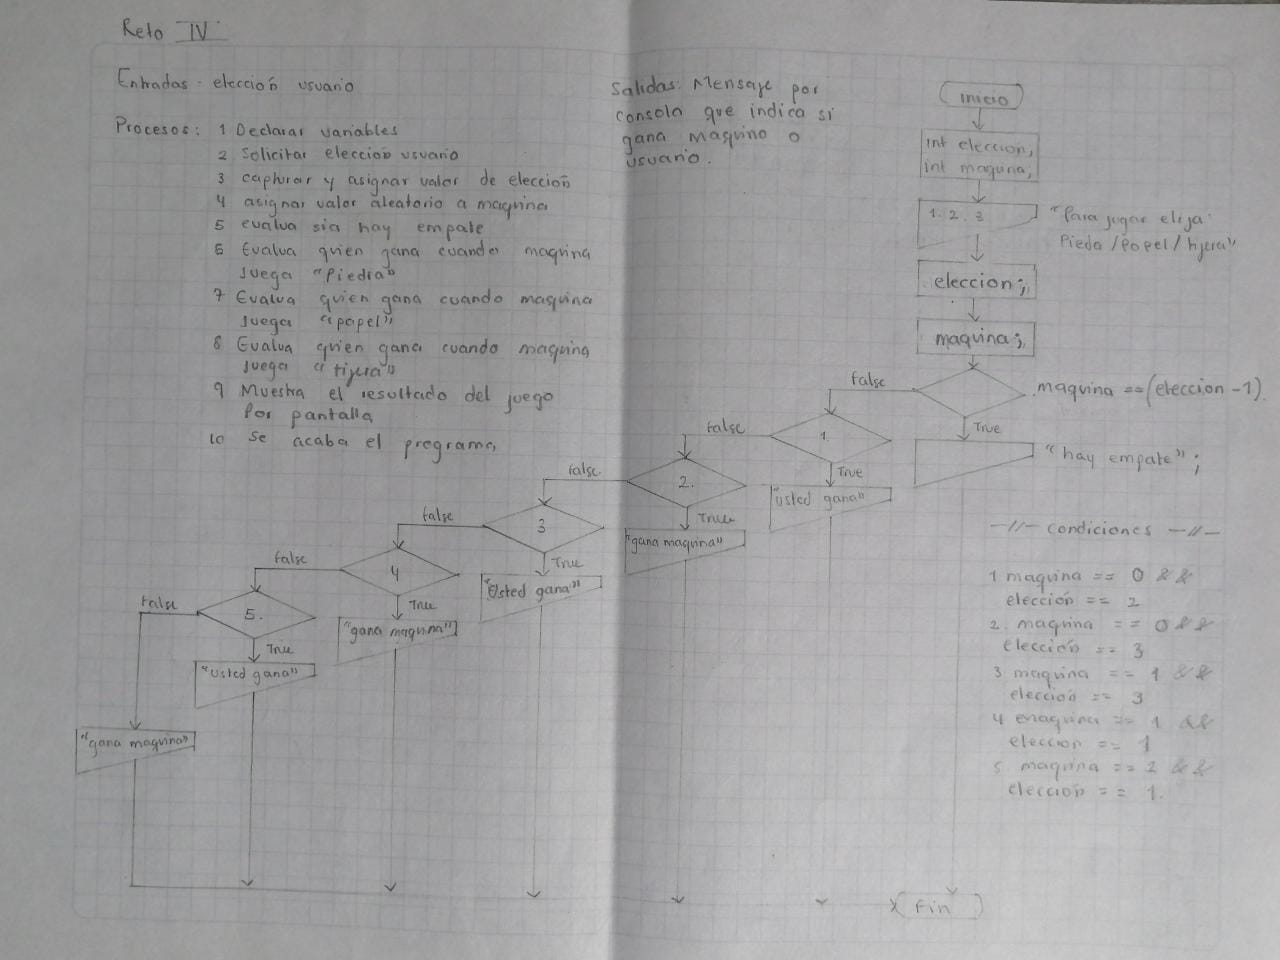 Reto IV
Entradas: elección usuario
Procesos: 1 Declarar variables
2 Solicitar eleccion usuario
3 capturar y asignar valor de elección
4 asignar valor aleatorio a maquina
5 evalua sia hay empate
6 Evalua quien gana cuando maquina
Juega "Piedra"
7 Evalua quien gana cuando maquina
Juega "papel"
8 Evalua quien gana cuando maquina
Juega "tijera"
9 Muestra el resultado del juego
Por pantalla
10 Se acaba el programa
Salidas: Mensaje por
consola que indica si
gana maquina o
usuario.
inicio
int eleccion;
int maquina;
1. 2. 3
"Para jugar elija:
Pieda / Papel / tijera"
eleccion;
maquina;
maquina == (eleccion - 1)
false
True
"hay empate";
1.
false
True
"usted gana"
2.
false
True
"gana maquina"
3
false
True
"Usted gana"
4
false
True
"gana maquina"
5.
false
True
"usted gana"
"gana maquina"
-//- condiciones -//-
1 maquina == 0 &&
elección == 2
2. maquina == 0 &&
elección == 3
3 maquina == 1 &&
elección == 3
4 maquina == 1 &&
eleccion == 1
5. maquina == 2 &&
elección == 1.
Fin